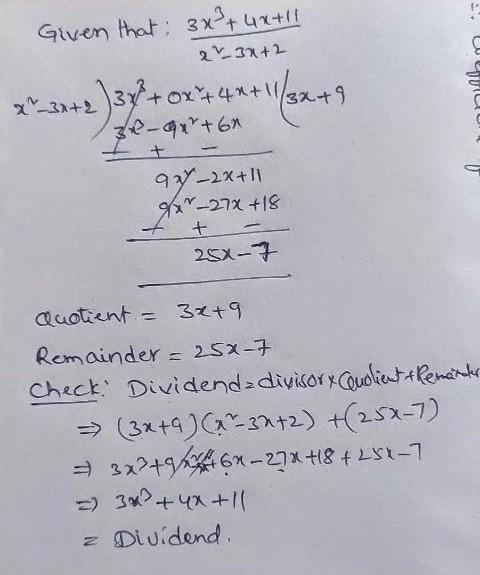 Given that: 3x³+4x+11
x²-3x+2
x²-3x+2)3x³+0x²+4x+11(3x+9
3x³-9x²+6x
- + -
9x²-2x+11
9x²-27x+18
- + -
25x-7
Quotient = 3x+9
Remainder = 25x-7
Check: Dividend=divisor×Quotient+Remainder
⇒ (3x+9)(x²-3x+2)+(25x-7)
⇒ 3x³+9x²+6x-27x+18+25x-7
⇒ 3x³+4x+11
= Dividend.